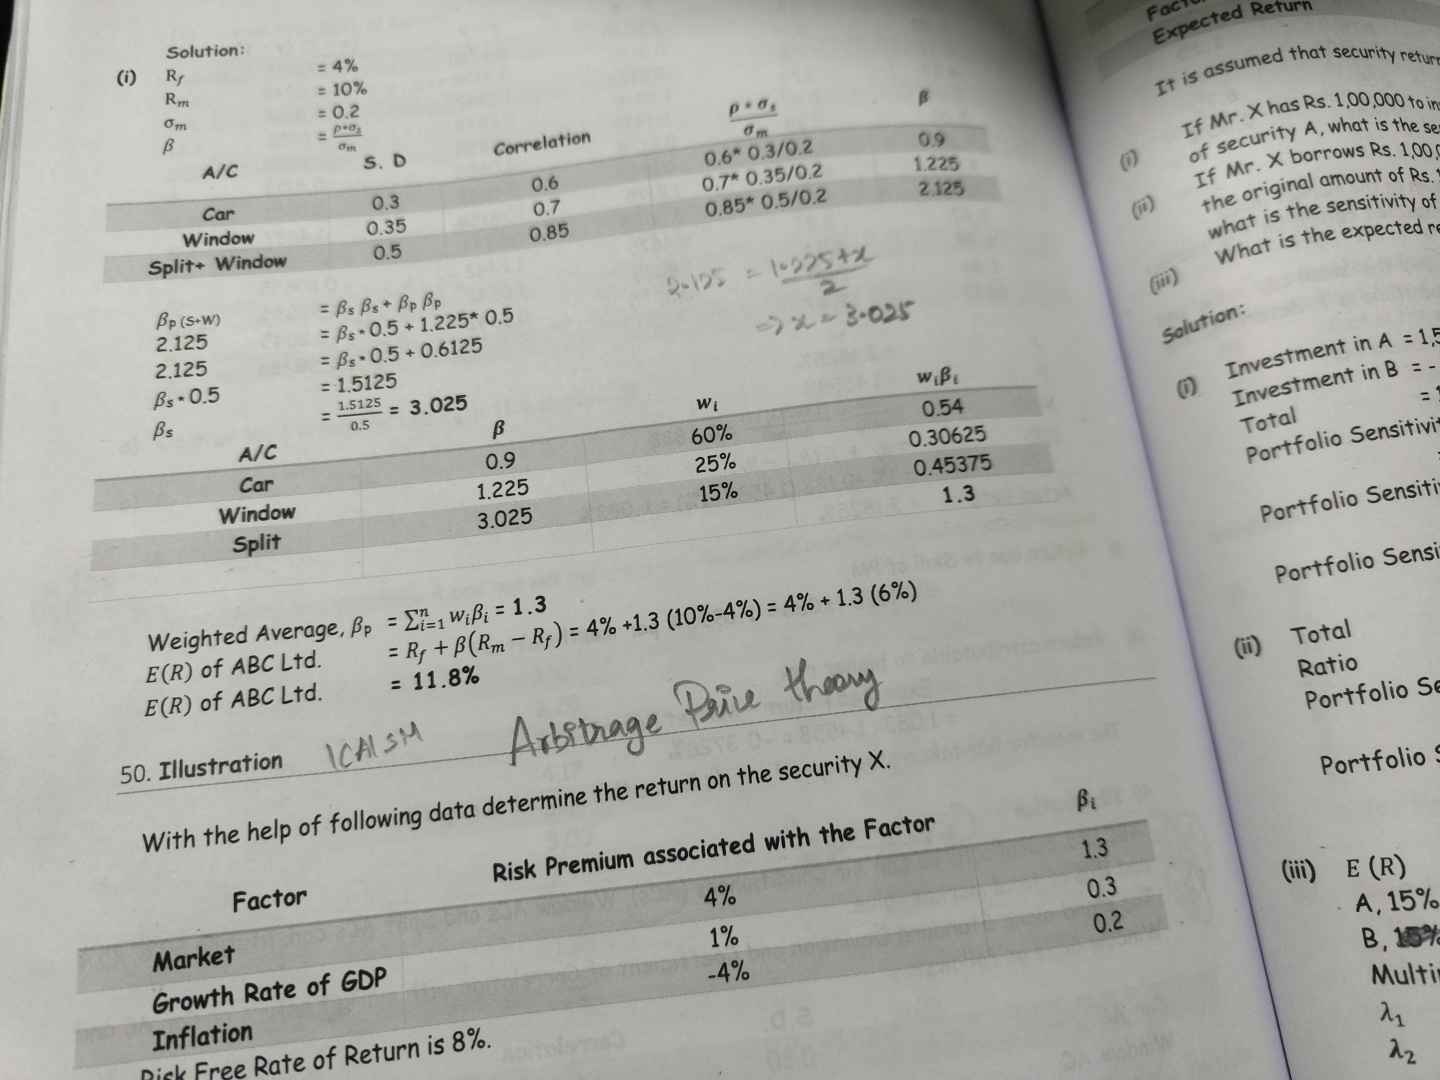 Solution:
(i) R_f = 4%
R_m = 10%
σ_m = 0.2
β = ρ*σ_s / σ_m
A/C S. D Correlation ρ*σ_s / σ_m β
Car 0.3 0.6 0.6* 0.3/0.2 0.9
Window 0.35 0.7 0.7* 0.35/0.2 1.225
Split+ Window 0.5 0.85 0.85* 0.5/0.2 2.125
2.125 = 1.225+x / 2
⇒ x = 3.025
β_P (S+W) = β_s β_s + β_p β_p
2.125 = β_s * 0.5 + 1.225* 0.5
2.125 = β_s * 0.5 + 0.6125
β_s * 0.5 = 1.5125
β_s = 1.5125 / 0.5 = 3.025
A/C β w_i w_iβ_i
Car 0.9 60% 0.54
Window 1.225 25% 0.30625
Split 3.025 15% 0.45375
1.3
Weighted Average, β_p = Σⁿ_{i=1} w_iβ_i = 1.3
E(R) of ABC Ltd. = R_f + β(R_m − R_f) = 4% +1.3 (10%-4%) = 4% + 1.3 (6%)
E(R) of ABC Ltd. = 11.8%
50. Illustration ICAI SM Arbitrage Price theory
With the help of following data determine the return on the security X.
Factor Risk Premium associated with the Factor β_i
Market 4% 1.3
Growth Rate of GDP 1% 0.3
Inflation -4% 0.2
Risk Free Rate of Return is 8%.
Expected Return
It is assumed that security
(i) If Mr. X has Rs. 1,00,000 to
of security A, what is the
(ii) If Mr. X borrows Rs.
the original amount of Rs.
what is the sensitivity of
(iii) What is the expected
Solution:
(i) Investment in A =
Investment in B = -
Total =
Portfolio
Portfolio
Portfolio
(ii) Total
Ratio
Portfolio
Portfolio
(iii) E (R)
A, 15%
B,
λ₁
λ₂